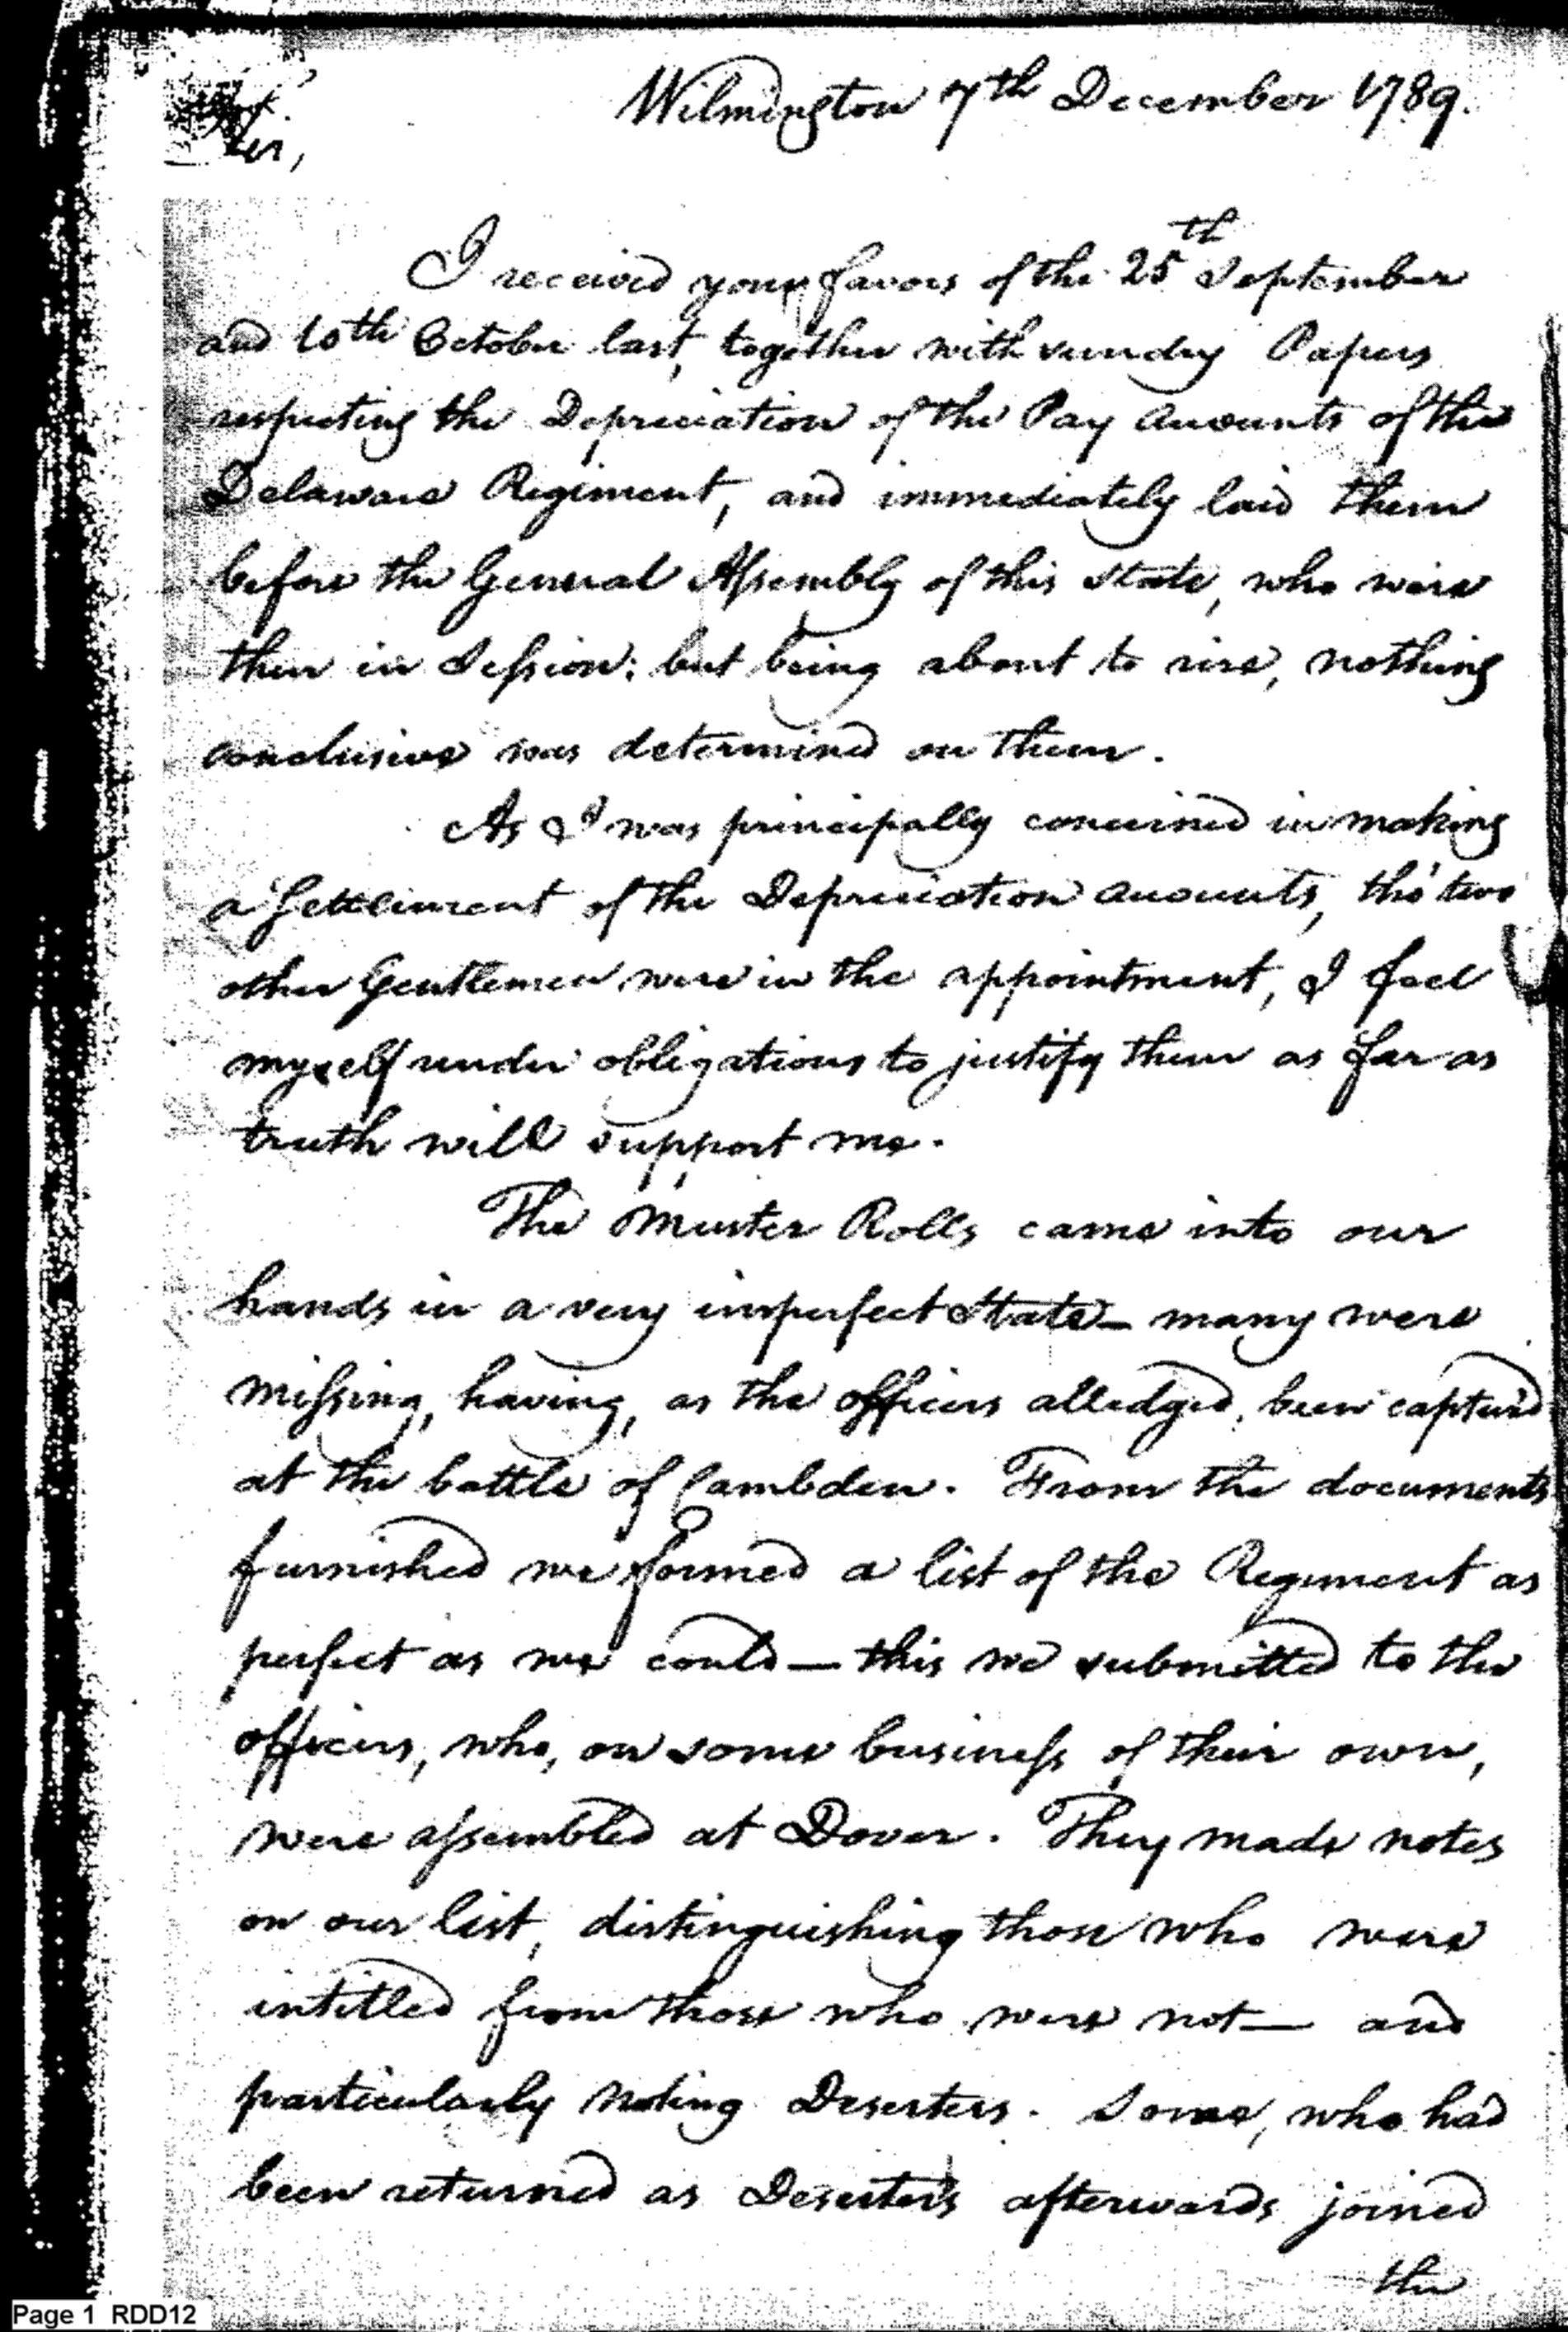 Wilmington 7th December 1789.
I received your favors of the 25th September
and 10th October last, together with sundry Papers
respecting the Depreciation of the Pay Accounts of the
Delaware Regiment, and immediately laid them
before the General Assembly of this State, who were
then in Session; but being about to rise, nothing
conclusive was determined on them.
As I was principally concerned in making
a Settlement of the Depreciation Accounts, tho' two
other Gentlemen were in the appointment, I feel
myself under obligations to justify them as far as
truth will support me.
The Muster Rolls came into our
hands in a very imperfect State — many were
missing, having, as the officers alledged, been captur'd
at the battle of Cambden. From the documents
furnished we formed a list of the Regiment as
perfect as we could — this we submitted to the
officers, who, on some business of their own,
were assembled at Dover. They made notes
on our list, distinguishing those who were
intitled from those who were not — and
particularly noting Deserters. Some, who had
been returned as Deserters afterwards joined
the
Page 1 RDD12